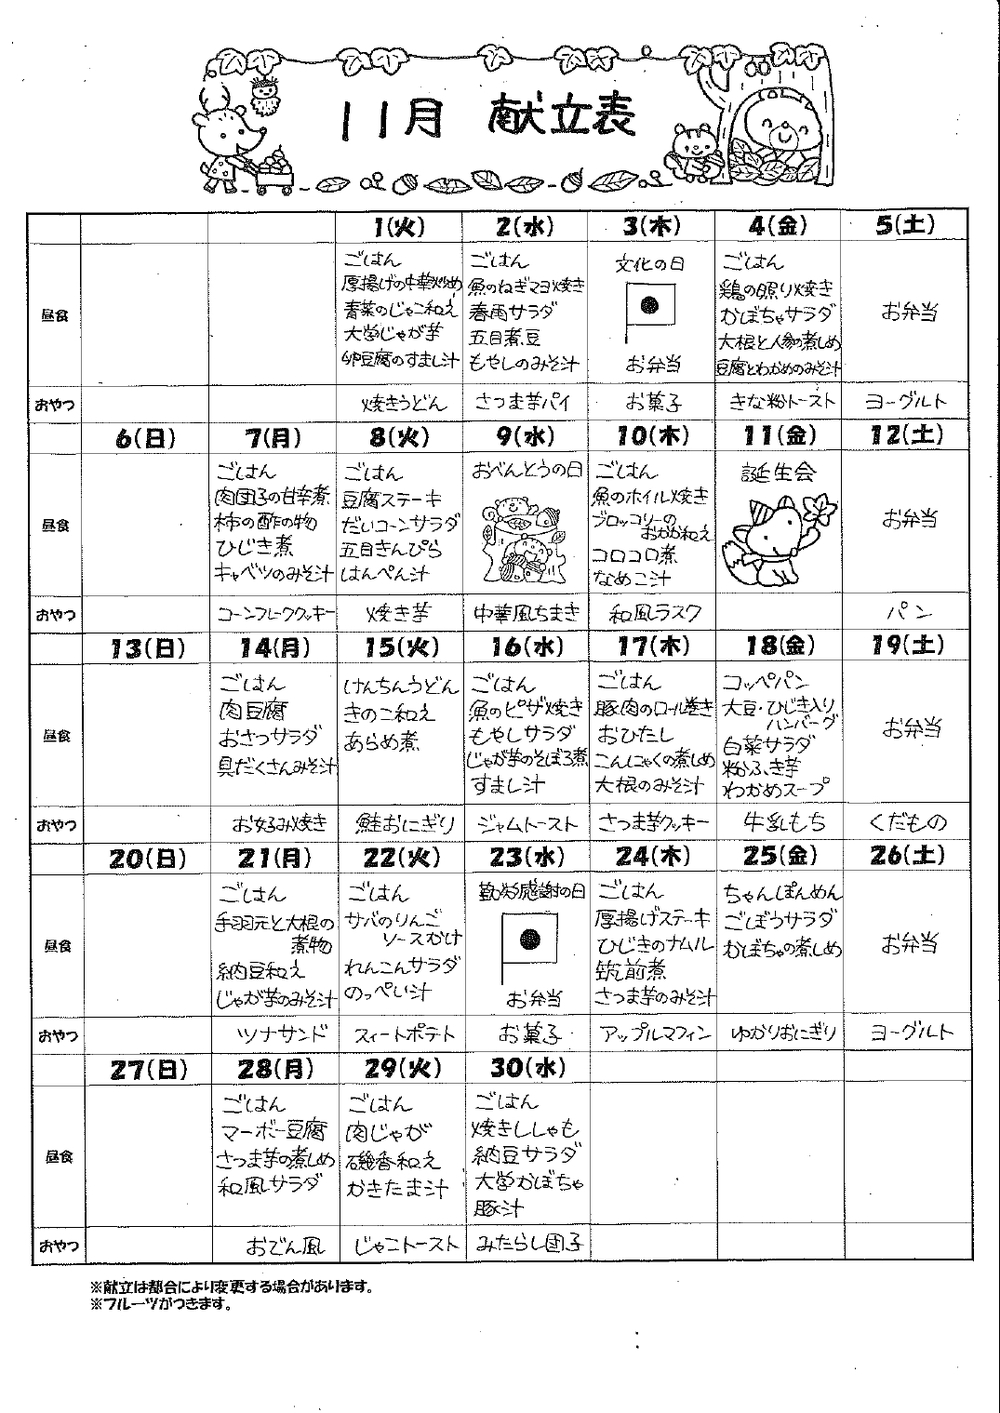 11月 献立表
1(火) 2(水) 3(木) 4(金) 5(土)
昼食
ごはん
厚揚げの中華炒め
青菜のじゃこ和え
大学じゃが芋
卵豆腐のすまし汁
ごはん
魚のねぎマヨ焼き
春雨サラダ
五目煮豆
もやしのみそ汁
文化の日
お弁当
ごはん
鶏の照り焼き
かぼちゃサラダ
大根と人参の煮しめ
豆腐とわかめのみそ汁
お弁当
おやつ 焼きうどん さつま芋パイ お菓子 きな粉トースト ヨーグルト
6(日) 7(月) 8(火) 9(水) 10(木) 11(金) 12(土)
昼食
ごはん
肉団子の甘辛煮
柿の酢の物
ひじき煮
キャベツのみそ汁
ごはん
豆腐ステーキ
だいコーンサラダ
五目きんぴら
はんぺん汁
おべんとうの日
ごはん
魚のホイル焼き
ブロッコリーの
おかか和え
コロコロ煮
なめこ汁
誕生会
お弁当
おやつ コーンフレーククッキー 焼き芋 中華風ちまき 和風ラスク パン
13(日) 14(月) 15(火) 16(水) 17(木) 18(金) 19(土)
昼食
ごはん
肉豆腐
おさつサラダ
具だくさんみそ汁
けんちんうどん
きのこ和え
あらめ煮
ごはん
魚のピザ焼き
もやしサラダ
じゃが芋のそぼろ煮
すまし汁
ごはん
豚肉のロール巻き
おひたし
こんにゃくの煮しめ
大根のみそ汁
コッペパン
大豆・ひじき入り
ハンバーグ
白菜サラダ
粉ふき芋
わかめスープ
お弁当
おやつ お好み焼き 鮭おにぎり ジャムトースト さつま芋クッキー 牛乳もち くだもの
20(日) 21(月) 22(火) 23(水) 24(木) 25(金) 26(土)
昼食
ごはん
手羽元と大根の
煮物
納豆和え
じゃが芋のみそ汁
ごはん
サバのりんご
ソースかけ
れんこんサラダ
のっぺい汁
勤労感謝の日
お弁当
ごはん
厚揚げステーキ
ひじきのナムル
筑前煮
さつま芋のみそ汁
ちゃんぽんめん
ごぼうサラダ
かぼちゃの煮しめ
お弁当
おやつ ツナサンド スィートポテト お菓子 アップルマフィン ゆかりおにぎり ヨーグルト
27(日) 28(月) 29(火) 30(水)
昼食
ごはん
マーボー豆腐
さつま芋の煮しめ
和風サラダ
ごはん
肉じゃが
磯香和え
かきたま汁
ごはん
焼きししゃも
納豆サラダ
大学かぼちゃ
豚汁
おやつ おでん風 じゃこトースト みたらし団子
※献立は都合により変更する場合があります。
※フルーツがつきます。